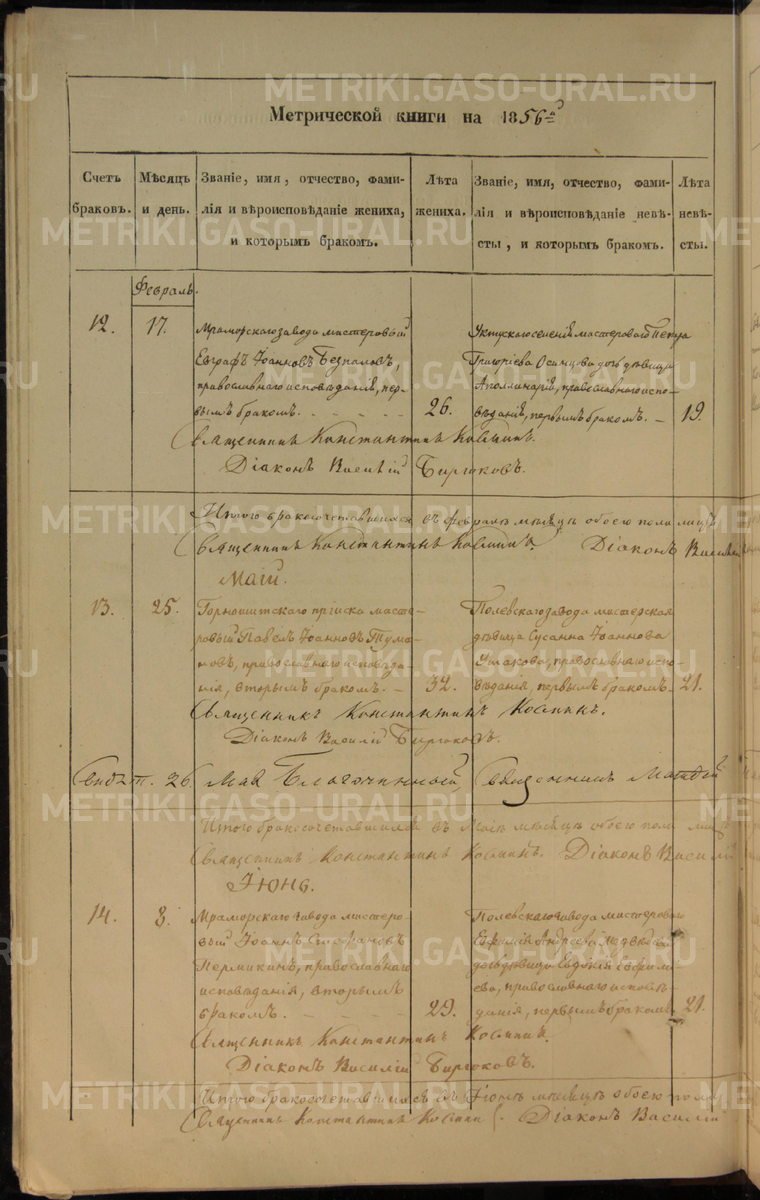 Метрической книги на 1856й
Счетъ браковъ.
Мѣсяцъ и день.
Званіе, имя, отчество, фами-
лія и вѣроисповѣданіе жениха,
и которымъ бракомъ.
Лѣта жениха.
Званіе, имя, отчество, фами-
лія и вѣроисповѣданіе невѣ-
сты, и которымъ бракомъ.
Лѣта невѣ-
сты.
Февраль.
12.
17.
Мраморскаго завода мастеровый
Евграфъ Іоанновъ Безпаловъ,
православнаго исповѣданія, пер-
вымъ бракомъ.
26.
Уктускаго селенія мастероваго Петра
Григоріева Осинцева дочь дѣвица
Аполлинарія, православнаго испо-
вѣданія, первымъ бракомъ.
19.
Священникъ Константинъ
Діаконъ Василій Бирюковъ.
Итого бракосочетавшихся въ февралѣ мѣсяцѣ обоего пола лицъ
Священникъ Константинъ Діаконъ Василій
Маій.
13.
25.
Горнощитскаго пріиска масте-
ровый Павелъ Іоанновъ Тума-
новъ, православнаго исповѣда-
нія, вторымъ бракомъ.
32.
Полевскаго завода мастерская
дѣвица Сусанна Іоаннова
Ушакова, православнаго испо-
вѣданія, первымъ бракомъ.
21.
Священникъ Константинъ
Діаконъ Василій Бирюковъ.
26 Мая Благочинный, Священникъ
Итого бракосочетавшихся въ Маіѣ мѣсяцѣ обоего пола лицъ
Священникъ Константинъ Діаконъ Василій
Іюнь.
14.
3.
Мраморскаго завода мастеро-
вый Іоаннъ Стефановъ
Пермикинъ, православнаго
исповѣданія, вторымъ
бракомъ.
29.
Полевскаго завода мастероваго
Андреева
дочь дѣвица Евдокія Ефимі-
ева, православнаго исповѣ-
данія, первымъ бракомъ.
21.
Священникъ Константинъ
Діаконъ Василій Бирюковъ.
Итого бракосочетавшихся въ Іюнѣ мѣсяцѣ обоего пола
Священникъ Константинъ Діаконъ Василій
METRIKI.GASO-URAL.RU